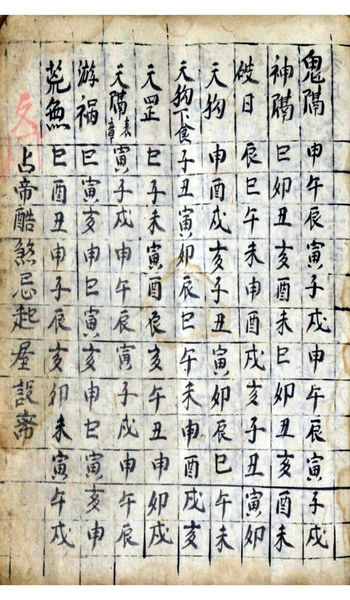 鬼隔申午辰寅子戌申午辰寅子戌
神隔巳卯丑亥酉未巳卯丑亥酉未
破日辰巳午未申酉戌亥子丑寅卯
天狗申酉戌亥子丑寅卯辰巳午未
天狗下食子丑寅卯辰巳午未申酉戌亥
天罡巳子未寅酉辰亥午丑申卯戌
天隔寅子戌申午辰寅子戌申午辰
游祸巳寅亥申巳寅亥申巳寅亥申
荒無巳酉丑申子辰亥卯未寅午戌
占帝酷煞忌起屋設斋